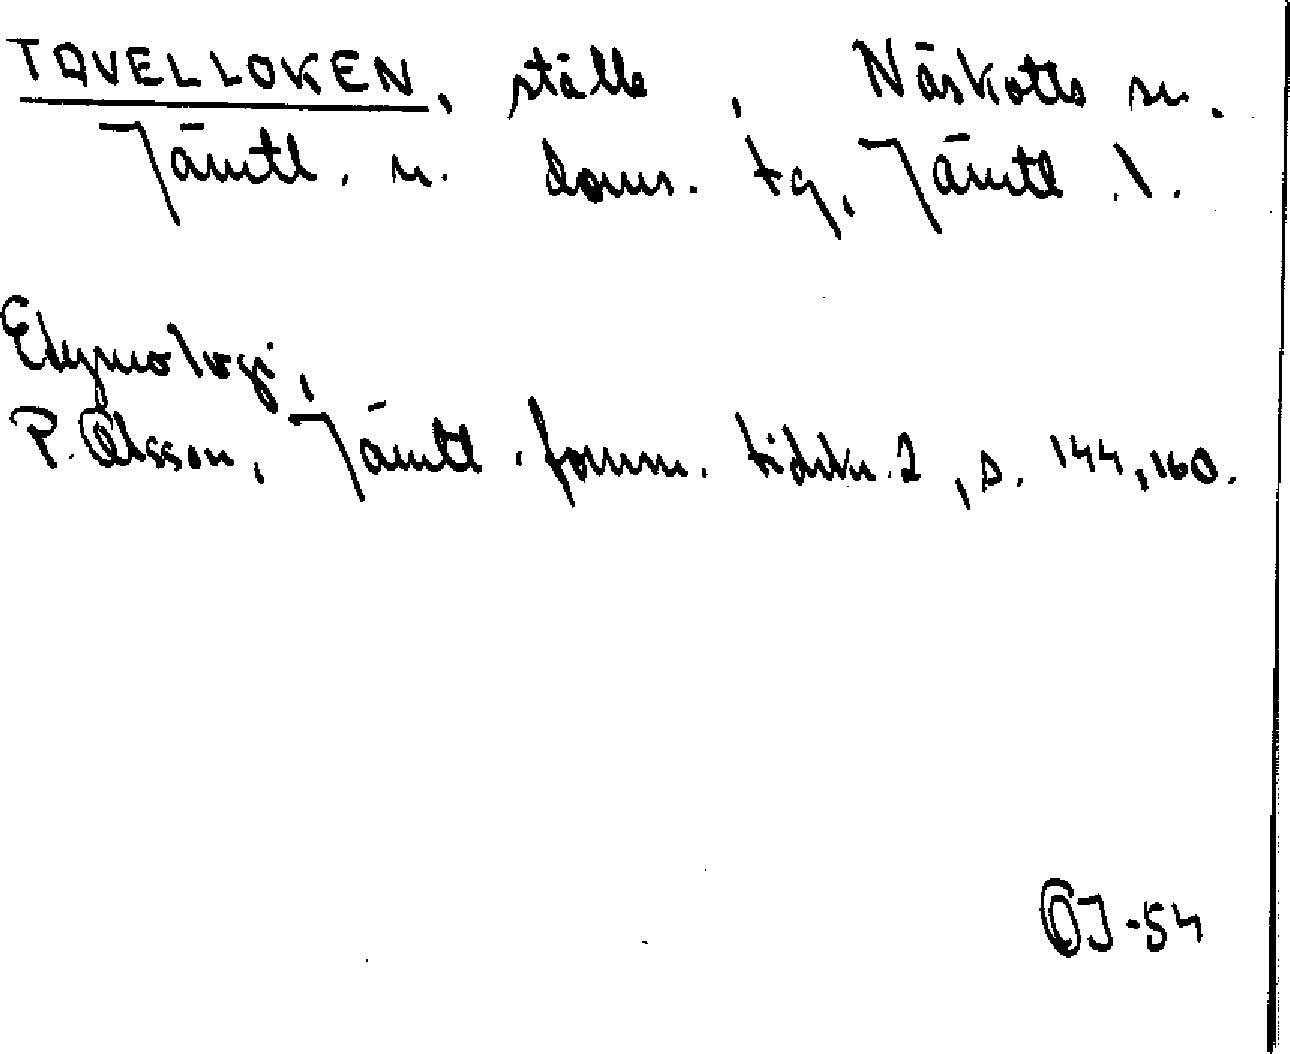 TAVELLOKEN, ställe, Näskotts sn.
Jämtl. n. doms. tg, Jämtl. l.
Etymologi,
P. Olsson, Jämtl. fornm. tidskr. 2, s. 144, 160.
OJ-54